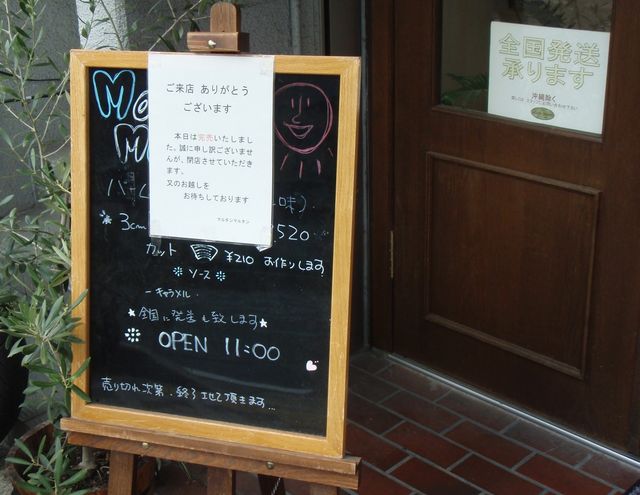 ご来店 ありがとう
ございます
本日は完売いたしまし
た。誠に申し訳ございませ
んが、閉店させていただき
ます。
又のお越しを
お待ちしております
マルタンマルタン
味)
3cm 520
カット ¥210 お作りします
※ソース※
ーキャラメル
★全国に発送も致します★
OPEN 11:00
売り切れ次第、終了させて頂きます...
全国発送
承ります
沖縄除く